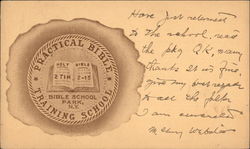 PRACTICAL BIBLE
TRAINING SCHOOL
HOLY BIBLE
2 TIM 2-15
BIBLE SCHOOL
PARK,
N.Y.
Have just returned
to the school, read
the pkg O.K, many
thanks. It is fine
give my best regards
to all the folks
I am